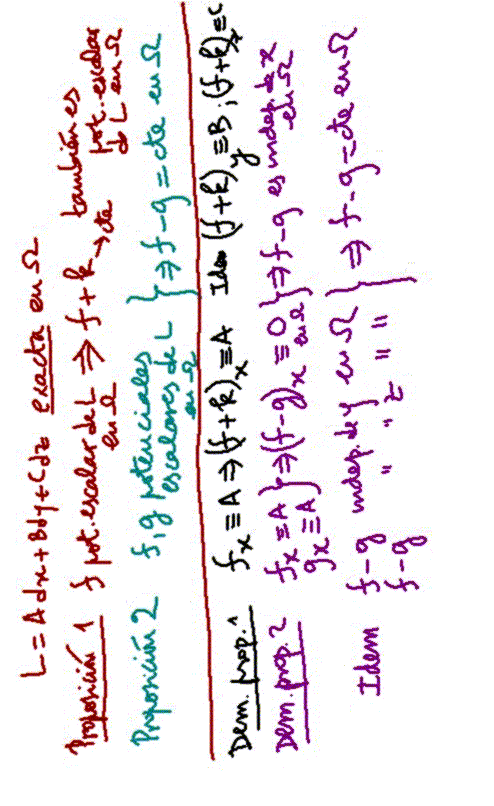 L = Adx + Bdy + Cdz exacta en Ω
Proposición 1 f pot. escalar de L en Ω ⇒ f + k → cte también es pot. escalar de L en Ω
Proposición 2 f, g potenciales escalares de L en Ω } ⇒ f - g = cte en Ω
Dem. prop. 1 f_x ≡ A ⇒ (f + k)_x ≡ A Idem (f + k)_y ≡ B ; (f + k)_z ≡ C
Dem. prop. 2 f_x ≡ A g_x ≡ A } ⇒ (f - g)_x ≡ 0 en Ω } ⇒ f - g es indep. de x en Ω
Idem f - g indep. de y en Ω
f - g " " z " " } ⇒ f - g = cte en Ω